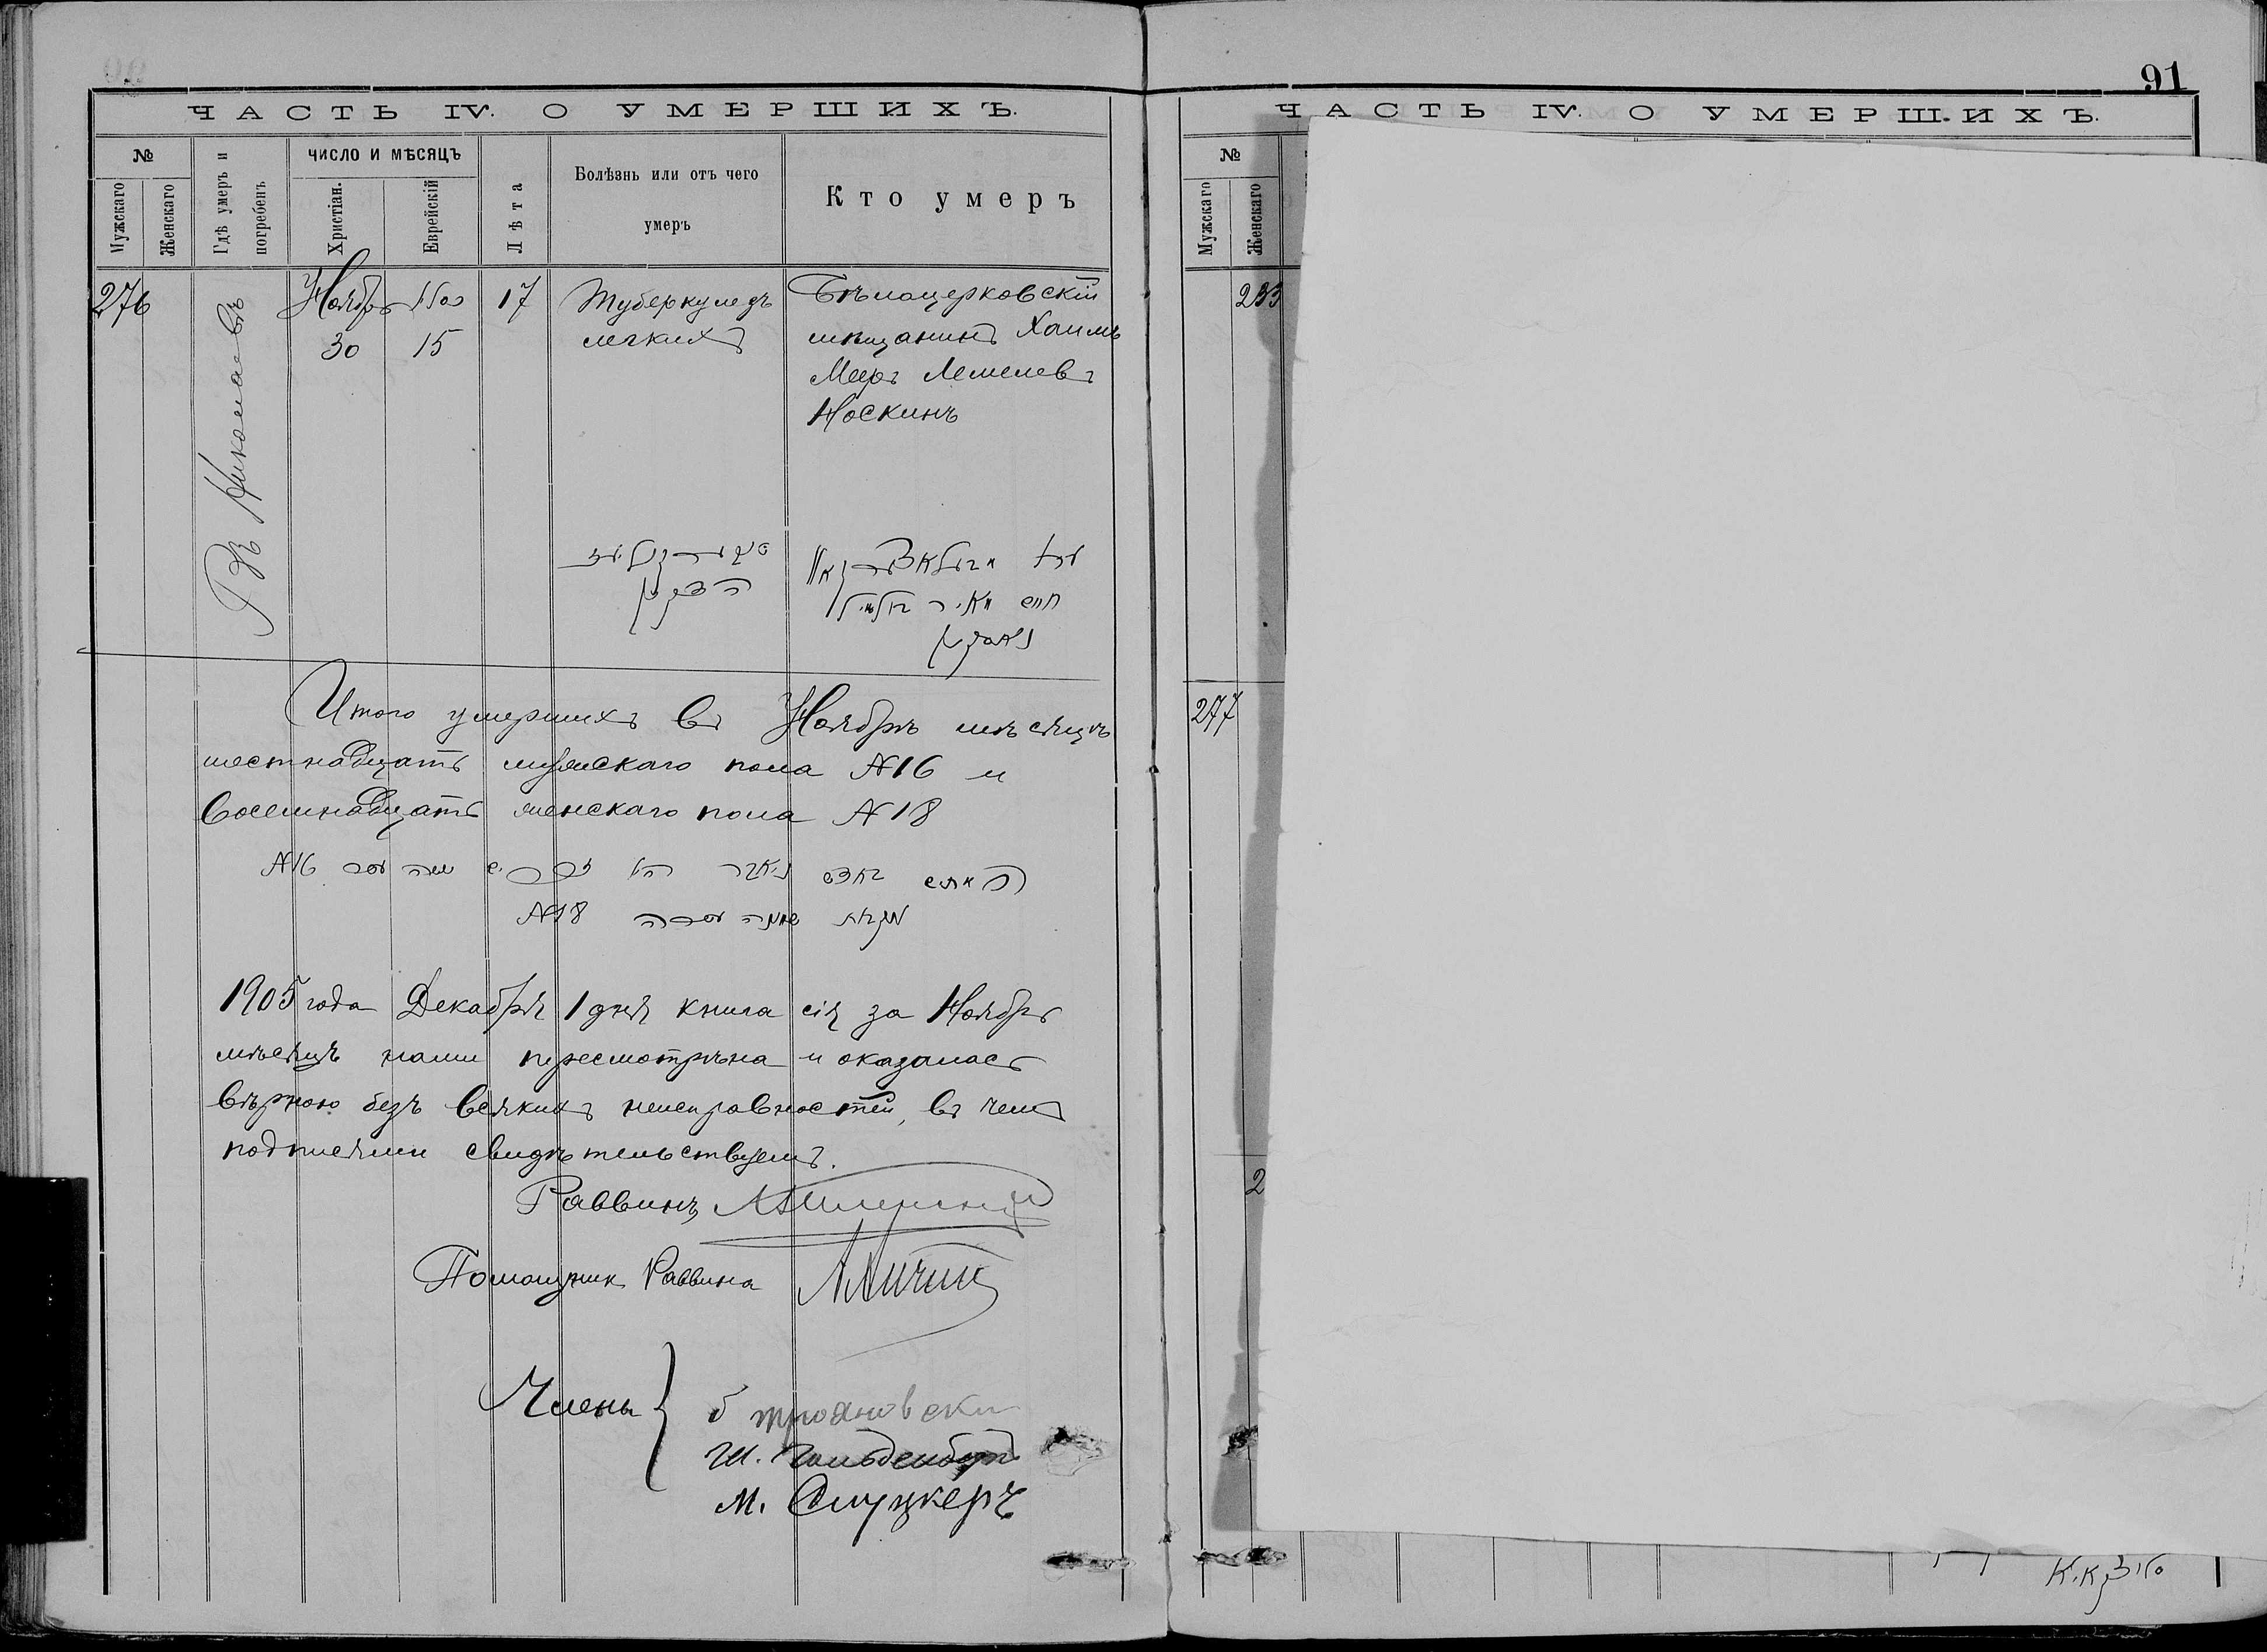 91
ЧАСТЬ IV. О УМЕРШИХЪ.
№
Мужскаго
Женскаго
Гдѣ умеръ и погребенъ
ЧИСЛО И МѢСЯЦЪ
Христіан.
Еврейскій
Лѣта
Болѣзнь или отъ чего
умеръ
Кто умеръ
276
Въ Николаевѣ
Ноябрь
30
כסלו
15
17
Туберкулезъ
легкихъ
Бѣлоцерковскій
мѣщанинъ Хаимъ
Меер Лемелев
Носкинъ
חיים מאיר
נאסקין
Итого умершихъ въ Ноябрѣ мѣсяцѣ
шестнадцать мужскаго пола №16 и
восемнадцать женскаго пола №18
זכרים ששה עשר №16
שמנה עשרה №18
1905 года Декабря 1 дня книга сія за Ноябрь
мѣсяцъ нами пересмотрѣна и оказалась
вѣрною безъ всякихъ неисправностей, въ чемъ
подписями свидѣтельствуемъ.
Раввинъ
Помощник Раввина
Члены
Б Трояновски
Ш. Гольденберг
М. Слуцкеръ
ЧАСТЬ IV. О УМЕРШИХЪ.
№
Мужскаго
Женскаго
233
277
2